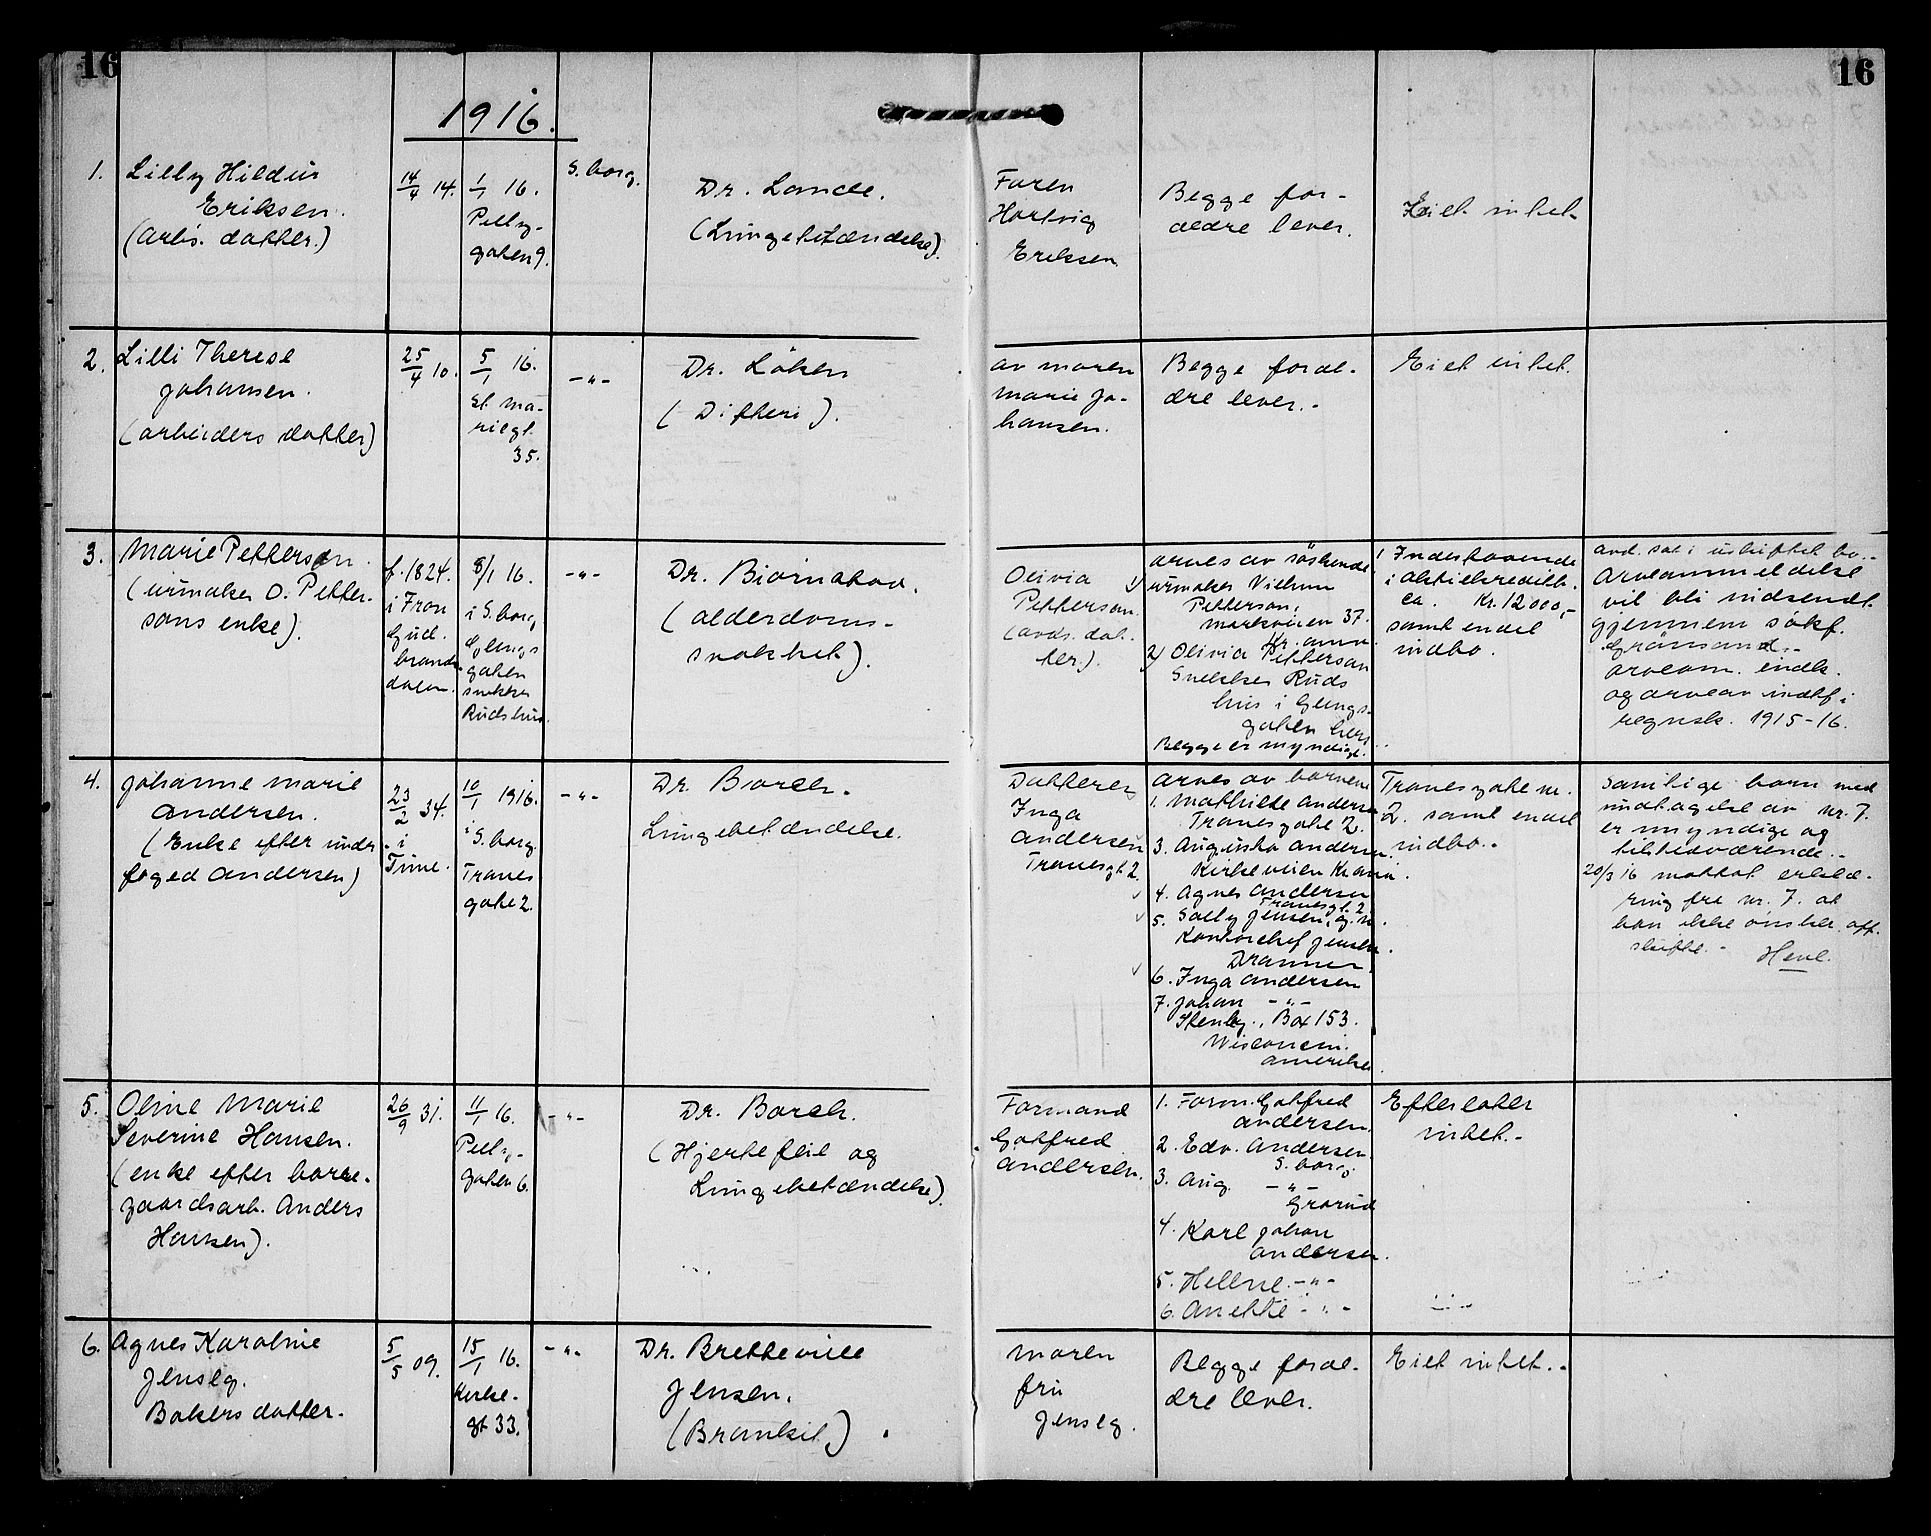 16
16
1916.
1.
Lilly Hildur
Eriksen.
(arb. datter.)
14/4 14.
1/1 16.
Pelly-
gaten 9.
S.borg.
Dr. Lande.
(Lungebetændelse).
Faren
Hartvig
Eriksen
Begge for-
ældre lever.
Eiet intet.
2.
Lilli Therese
Johansen.
(arbeiders datter)
25/4 10.
5/1 16.
St. Ma-
riegt.
35.
-"-
Dr. Løken
(Difteri).
av moren
Marie Jo-
hansen.
Begge foræl-
dre lever.-
Eiet intet.
3.
Marie Petterson.
(urmaker O. Petter-
sons enke).
f. 1824.
i Fron
Gud-
brands-
dalen.
8/1 16.
i S.borg,
Glengs
gaten
snekker
Ruds hus.
-"-
Dr.
(alderdoms-
svakhet).
Olivia
Petterson.
(avds. dat-
ter.).
arves av søskende
1/ urmaker Vilhelm
Petterson,
Markveien 37.
Kr.ania
2/ Olivia Petterson
Snekker Ruds
hus i Glengs-
gaten hers.
Begge er myndige.
Indestaaende
i Aktiekreditb.
ca. Kr. 12000,-
samt endel
indbo.
avd. sat i uskiftet bo.-
Arveanmeldelse
vil bli indsendt
gjennem sakf.
Grønsand.-
arveanm. indk.
og arveav. indtf. i
regnsk. 1915-16.
4.
Johanne Marie
Andersen.
(Enke efter under
foged Andersen)
23/2 34.
i
Tune.
10/1 1916.
i S.borg.
Tranes
gate 2.
-"-
Dr. Borch.
Lungebetændelse.
Datteren
Inga
Andersen
Tranesgt. 2.
arves av barnene
1. Mathilde Andersen
Tranesgate 2.
3. Augusta Andersen
Kirkeveien Kr.ania.
4. Agnes Andersen
Tranesgt. 2.
5. Sally Jensen, g.m.
Kontorchef Jensen.
Drammen.
6. Inga Andersen
7. Johan -"-
Box 153.
Wisconsin.
Amerika.
Tranesgate nr.
2. samt endel
indbo.-
Samtlige barn med
undtagelse av nr. 7.
er myndige og
tilstedværende.-
20/3 16 mottat erklæ-
ring fra nr. 7. at
han ikke ønsker off.
skifte.-
5.
Oline Marie
Severine Hansen.
(enke efter borre-
gaardsarb. Anders
Hansen).
26/9 31.
11/1 16.
Pelly-
gaten 6.
-"-
Dr. Borch.
(Hjertefeil og
Lungebetændelse).
Formand
Gotfred
Andersen.
1. Form. Gotfred
Andersen.
2. Edv. Andersen
S.borg.
3. Aug. -"-
Grorud
4. Karl Johan
Andersen.
5. Hellne. -"-
6. Anette -"-
Efterlater
intet.-
6.
Agnes Karoline
Jenseg.
Bakers datter.
5/5 09.
15/1 16.
Kirke-
gt 33.
-"-
Dr. Bretteville
Jensen.
(Bronkit).
Moren
fru
Jenseg.
Begge foræl-
dre lever.
Eiet intet.-